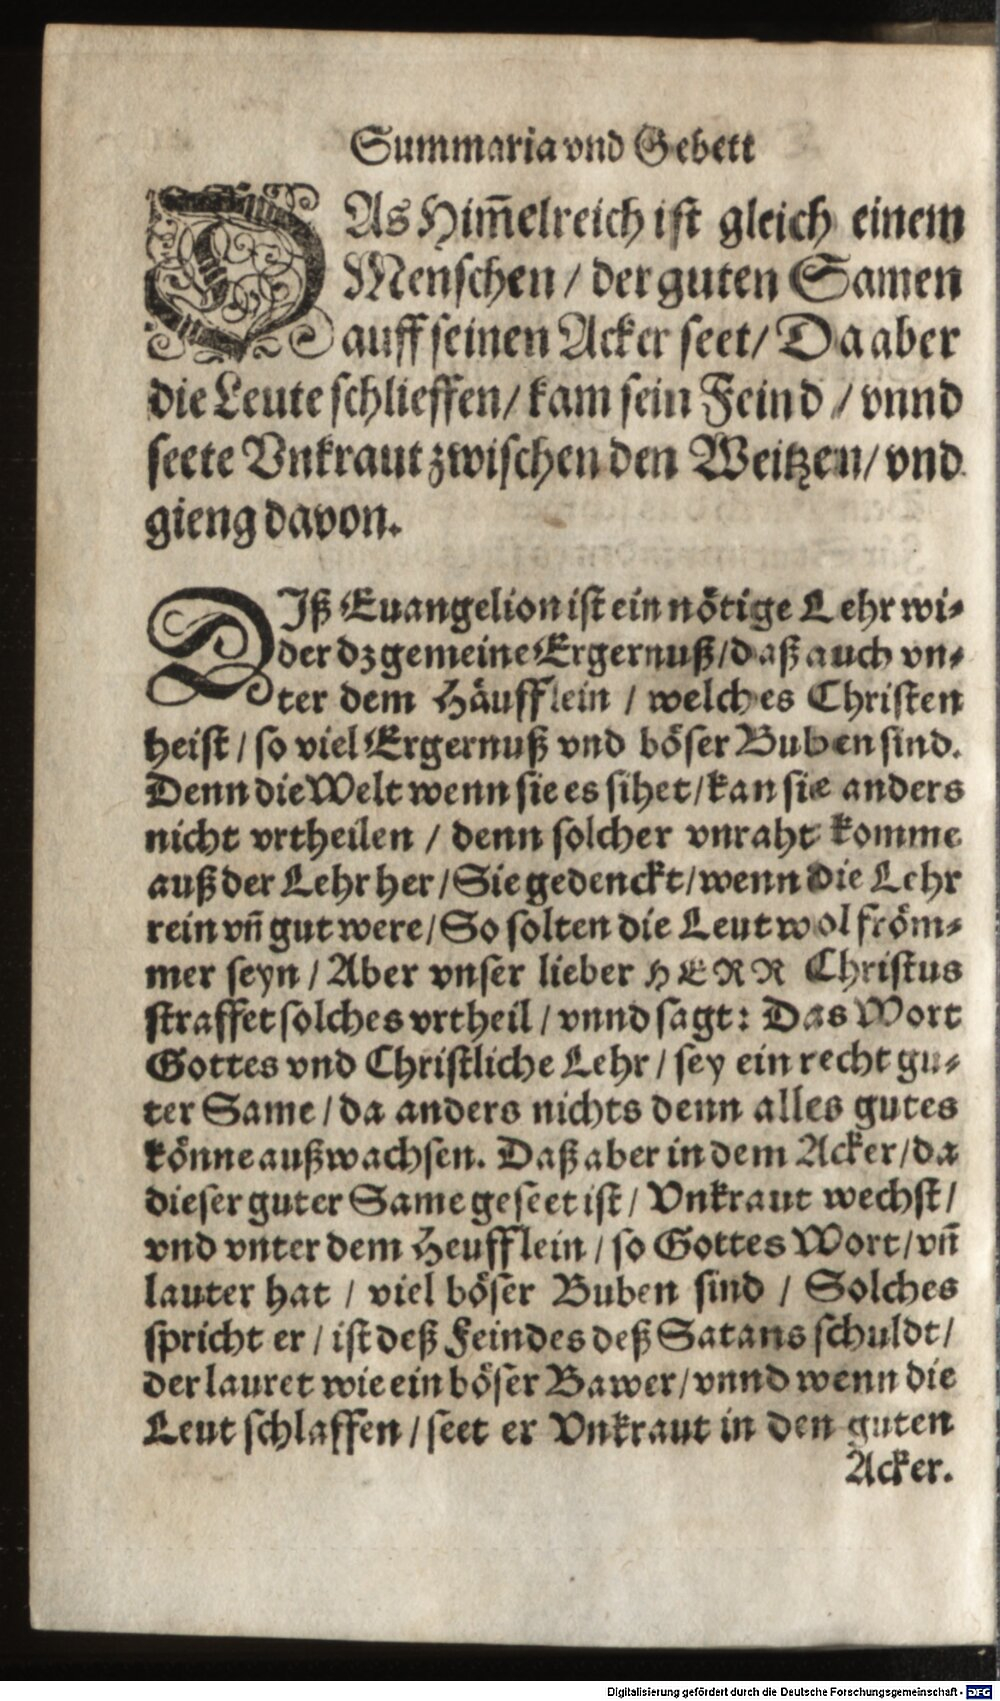 Summaria vnd Gebett
DAs Him̄elreich ist gleich einem
Menschen / der guten Samen
auff seinen Acker seet / Da aber
die Leute schlieffen / kam sein Feind / vnnd
seete Vnkraut zwischen den Weitzen / vnd
gieng davon.
DIß Euangelion ist ein nötige Lehr wi-
der dz gemeine Ergernuß / daß auch vn-
ter dem Häufflein / welches Christen
heist / so viel Ergernuß vnd böser Buben sind.
Denn die Welt wenn sie es sihet / kan sie anders
nicht vrtheilen / denn solcher vnraht komme
auß der Lehr her / Sie gedenckt / wenn die Lehr
rein vn̄ gut were / So solten die Leut wol fröm-
mer seyn / Aber vnser lieber HERR Christus
straffet solches vrtheil / vnnd sagt: Das Wort
Gottes vnd Christliche Lehr / sey ein recht gu-
ter Same / da anders nichts denn alles gutes
könne außwachsen. Daß aber in dem Acker / da
dieser guter Same geseet ist / Vnkraut wechst /
vnd vnter dem Heufflein / so Gottes Wort / vn̄
lauter hat / viel böser Buben sind / Solches
spricht er / ist deß Feindes deß Satans schuldt /
der lauret wie ein böser Bawer / vnnd wenn die
Leut schlaffen / seet er Vnkraut in den guten
Acker.
Digitalisierung gefördert durch die Deutsche Forschungsgemeinschaft - DFG